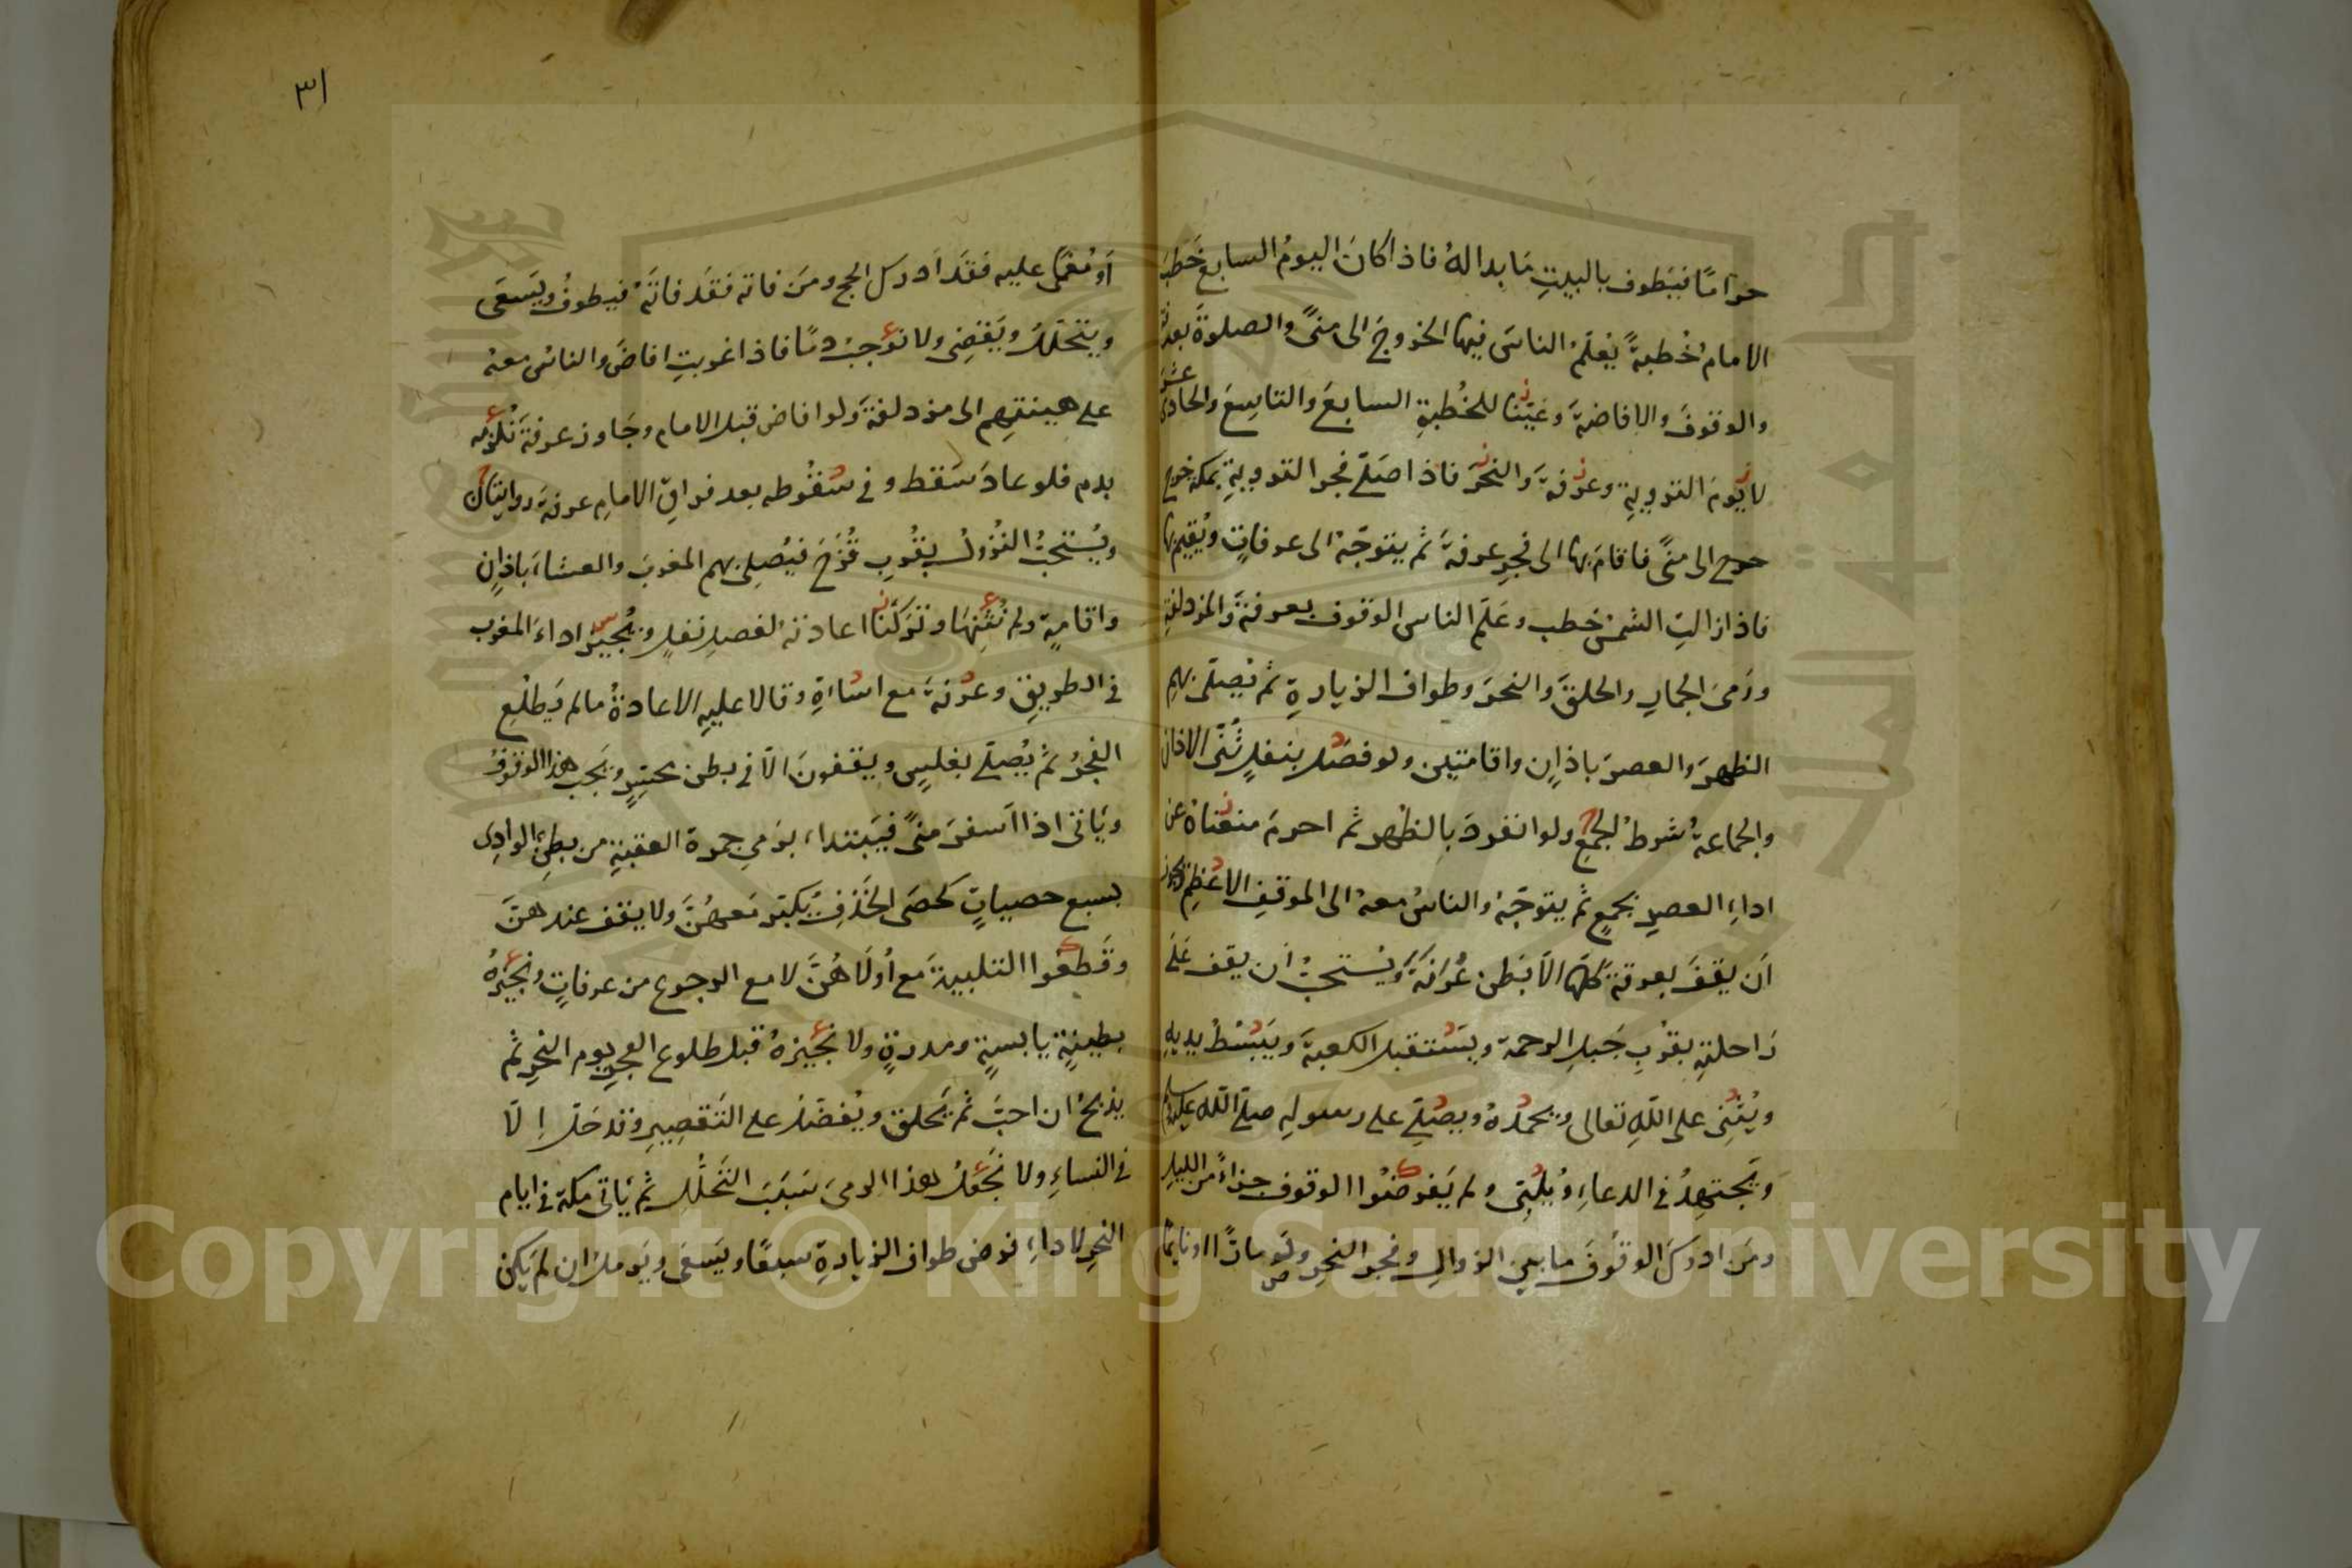 حرامًا فيَطوف بالبيتِ مَا بدا لهُ فاذا كانَ اليومُ السابع خَطبَ
الامامُ خُطبةً يُعَلّمُ الناسَ فيها الخروجَ الى منىً والصلوةَ بعرفة
والوقوفَ والافاضةَ وعَيّنّا للخُطبةِ السابعَ والتاسِعَ والحادىَ عشرَ
لا يومَ الترويةِ وعرفةَ والنحرَ فاذا صَلّى فجرَ الترويةِ بمكة خرج
خرج الى منىً فاقامَ بها الى فجرِ عرفةَ ثم يتوجّهُ الى عرفاتٍ ويُقيم بها
فاذا زالتِ الشمسُ خطب وعَلّمَ الناس الوقوف بعرفةَ والمزدلفةِ
ورَمىَ الجمارِ والحلقَ والنحرَ وطواف الزيارةِ ثم يُصلّى بهمِ
الظهرَ والعصرَ باذانٍ واقامتين ولو فصَل بنفلٍ ثُنّى الاذان
والجماعةُ شرطُ الجمعِ ولو انفردَ بالظهر ثم احرمَ منعناهُ عن
اداءِ العصرِ بجمعٍ ثم يتوجّهُ والناسُ معهُ الى الموقفِ الاعظمِ
اَن يقفَ بعرفة كلّها الّا بَطن عُرَنةَ ويُستحبُّ اَن يقف عَلَى
رَاحلتهِ بقُربِ جَبلِ الرحمة ويَستقبل الكعبةَ ويَبْسُطُ يديهِ
ويُثنِى على اللّهِ تعالى ويحمدُهُ ويصلّى على رسولهِ صلّى اللّه عليه وسلم
وَيجتهدُ فى الدعاءِ ويُلبّى ولم يَفرضُوا الوقوف جزاءً من الليل
ومَن ادركَ الوقوفَ ما بين الزوالِ وفجر النحرِ ولو مارًّا او نايمًا
٣١
أو مُغمًى عليه فقَد اَدرك الحج ومَن فاته فقَد فاتَهُ فيطوفُ ويَسعَى
ويتحلّلُ ويَقضِى ولا نوجبُ دمًا فاذا غربتِ افاضَ والناسُ معهُ
على هينتهِم الى مزدلفةَ ولو افاض قبل الامام وجَاوز عرفةَ نُلزمه
بدم فلو عادَ سَقط وفى سُقُوطه بعد فراقِ الامامِ عرفةَ روايتان
ويُستحبُّ النُزولُ بقُربِ قُزَحَ فيُصلِى بهم المغربَ والعشاءَ باذانٍ
واقامةٍ ولم نُثنِهَا وتركنَا اعادتهُ لفصلِ نفلٍ ونُجيزُ اداءَ المغرب
فى الطريقِ وعرفةَ مع اساءةٍ وقالا عليهِ الاعادةُ ما لم يَطلُع
الفجرُ ثم يُصلّى بغلسٍ ويقفونَ الّا فى بطن محسّرٍ ونُجب هذا الوقوفُ
ويَاتى اذا اَسفرَ منىً فيَبتداء برَمىِ جمرة العقبةِ من بطنِ الوادِى
بسبع حصياتٍ كحصَى الخَذفِ يُكبّر مَعهُنّ ولا يقف عندهنّ
وقَطعُوا التلبيةَ مَع أُولَاهُنّ لا مع الرجوع من عرفاتٍ ونُجيزُهُ
بطينةٍ يابسةٍ ومدرةٍ ولا نُجيزهُ قبل طلوع الفجرِ يوم النحرِ ثم
يذبحُ ان احبّ ثم يَحلق ويُفضّلُ على التقصيرِ وقد حَلّ اِلّا
فى النساءِ ولا نَجعَلُ هذا الرمىَ سَبَبَ التَحلُّلِ ثم يَاتى مكةَ فى ايام
النحرِ لاداءِ فرض طواف الزيارةِ سبعًا ويَسعَى ويَرملُ ان لم يَكن
Copyright © King Saud University